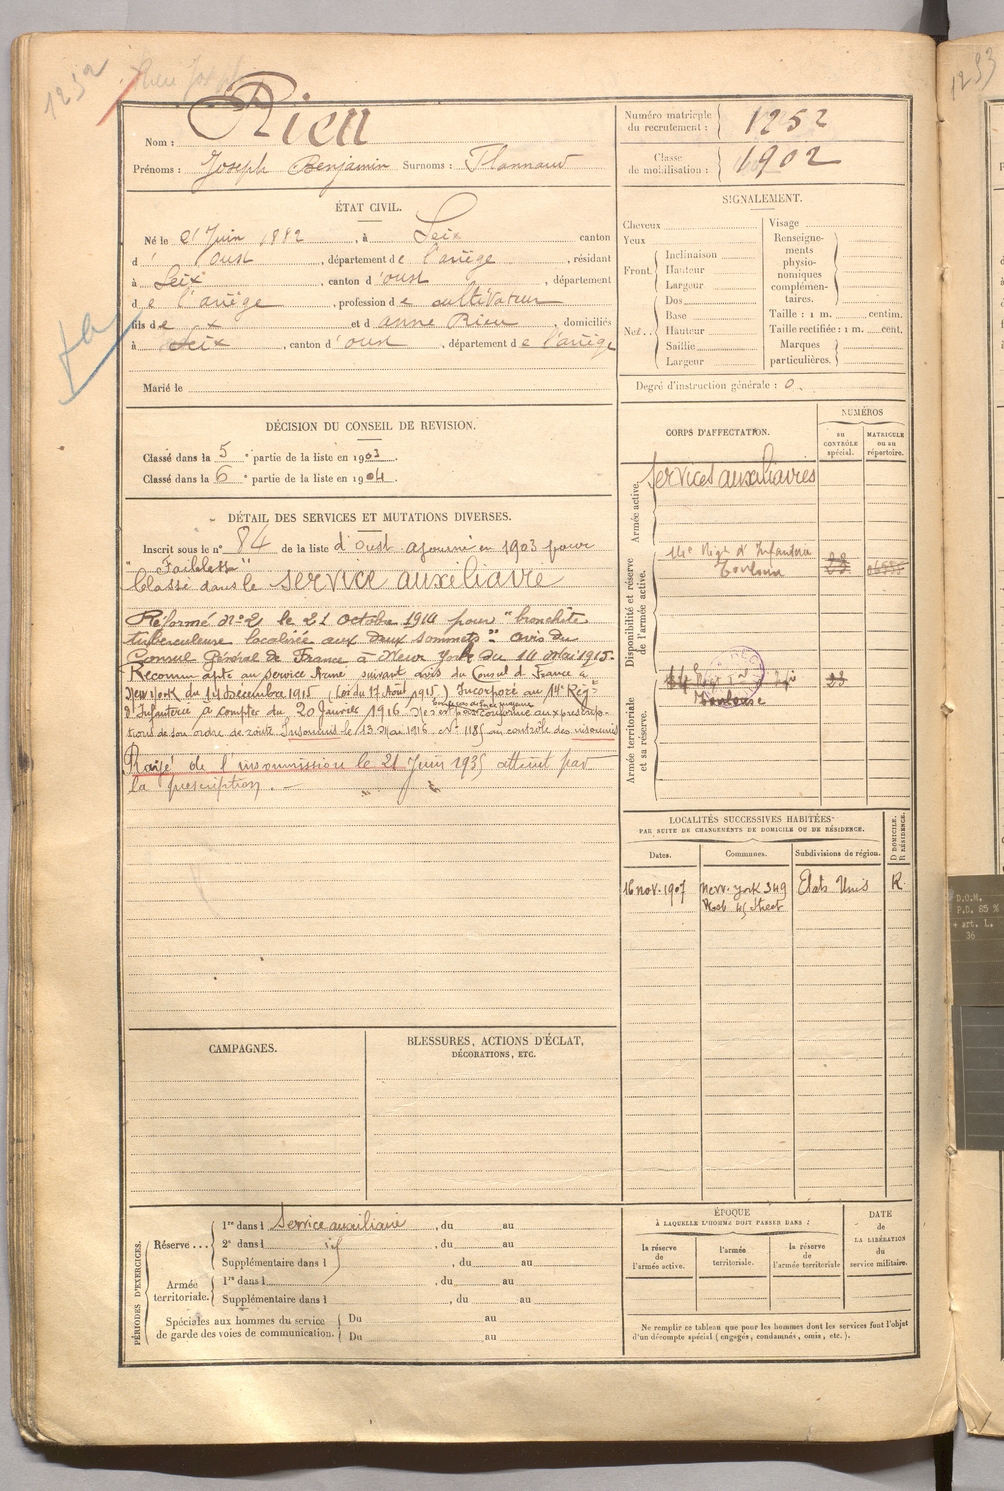 1252
Rieu Joseph
Nom : Rieu
Prénoms : Joseph Benjamin Surnoms : Flannaud
Numéro matricule
du recrutement : 1252
Classe
de mobilisation : 1902
ÉTAT CIVIL.
Né le 21 Juin 1882, à Seix canton
d' Oust, département de l'ariège, résidant
à Seix, canton d'oust, département
de l'ariège, profession de cultivateur
fils de x et d anne Rieu, domiciliés
à Seix, canton d'oust, département de l'ariège
Marié le
SIGNALEMENT.
Cheveux
Yeux
Front. Inclinaison
Hauteur
Largeur
Nez. Dos
Base
Hauteur
Saillie
Largeur
Visage
Renseigne-
ments
physio-
nomiques
complémen-
taires.
Taille : 1 m. centim.
Taille rectifiée : 1 m. cent.
Marques
particulières.
Degré d'instruction générale : 0.
DÉCISION DU CONSEIL DE REVISION.
Classé dans la 5e partie de la liste en 1903.
Classé dans la 6e partie de la liste en 1904.
DÉTAIL DES SERVICES ET MUTATIONS DIVERSES.
Inscrit sous le n° 84 de la liste d'Oust. ajourné en 1903 pour
"Faiblesse"
Classé dans le service auxiliaire
Réformé N°2 le 21 octobre 1914 pour "bronchite
tuberculeuse localisée aux deux sommets" avis du
Consul Général de France à New York du 14 Mai 1915.
Reconnu apte au service Armé suivant avis du Consul d France à
New York du 14 Decembre 1915 (Loi du 17 Août 1915) Incorporé au 14e Régt
d'Infanterie à compter du 20 Janvier 1916
Ne s'est pas conformé aux prescrip-
tions de son ordre de route Insoumis le 13 Mai 1916. N° 1185 au contrôle des insoumis
Rayé de l'insoumission le 21 Juin 1935 atteint par
la prescription. -
CORPS D'AFFECTATION.
NUMÉROS
au
CONTRÔLE
spécial.
MATRICULE
ou au
répertoire.
Armée active.
Services auxiliaires
Disponibilité et réserve
de l'armée active.
14e Régt d'Infanterie
Toulouse
23
Armée territoriale
et sa réserve.
Toulouse
23
LOCALITÉS SUCCESSIVES HABITÉES
PAR SUITE DE CHANGEMENTS DE DOMICILE OU DE RÉSIDENCE.
Dates.
Communes.
Subdivisions de région.
D DOMICILE.
R RÉSIDENCE.
16 nov. 1907
New-york 349
West 45 Street
Etats Unis
R.
CAMPAGNES.
BLESSURES, ACTIONS D'ÉCLAT,
DÉCORATIONS, ETC.
PÉRIODES D'EXERCICES.
Réserve ...
1re dans l service auxiliaire, du au
2e dans l id, du au
Supplémentaire dans l, du au
Armée
territoriale.
1re dans l, du au
Supplémentaire dans l, du au
Spéciales aux hommes du service
de garde des voies de communication.
Du au
Du au
ÉPOQUE
À LAQUELLE L'HOMME DOIT PASSER DANS :
la réserve
de
l'armée active.
l'armée
territoriale.
la réserve
de
l'armée territoriale
DATE
de
LA LIBÉRATION
du
service militaire.
Ne remplir ce tableau que pour les hommes dont les services font l'objet
d'un décompte spécial (engagés, condamnés, omis, etc.).
1253
D.O.M.
P.D. 85 %
+ art. L.
36